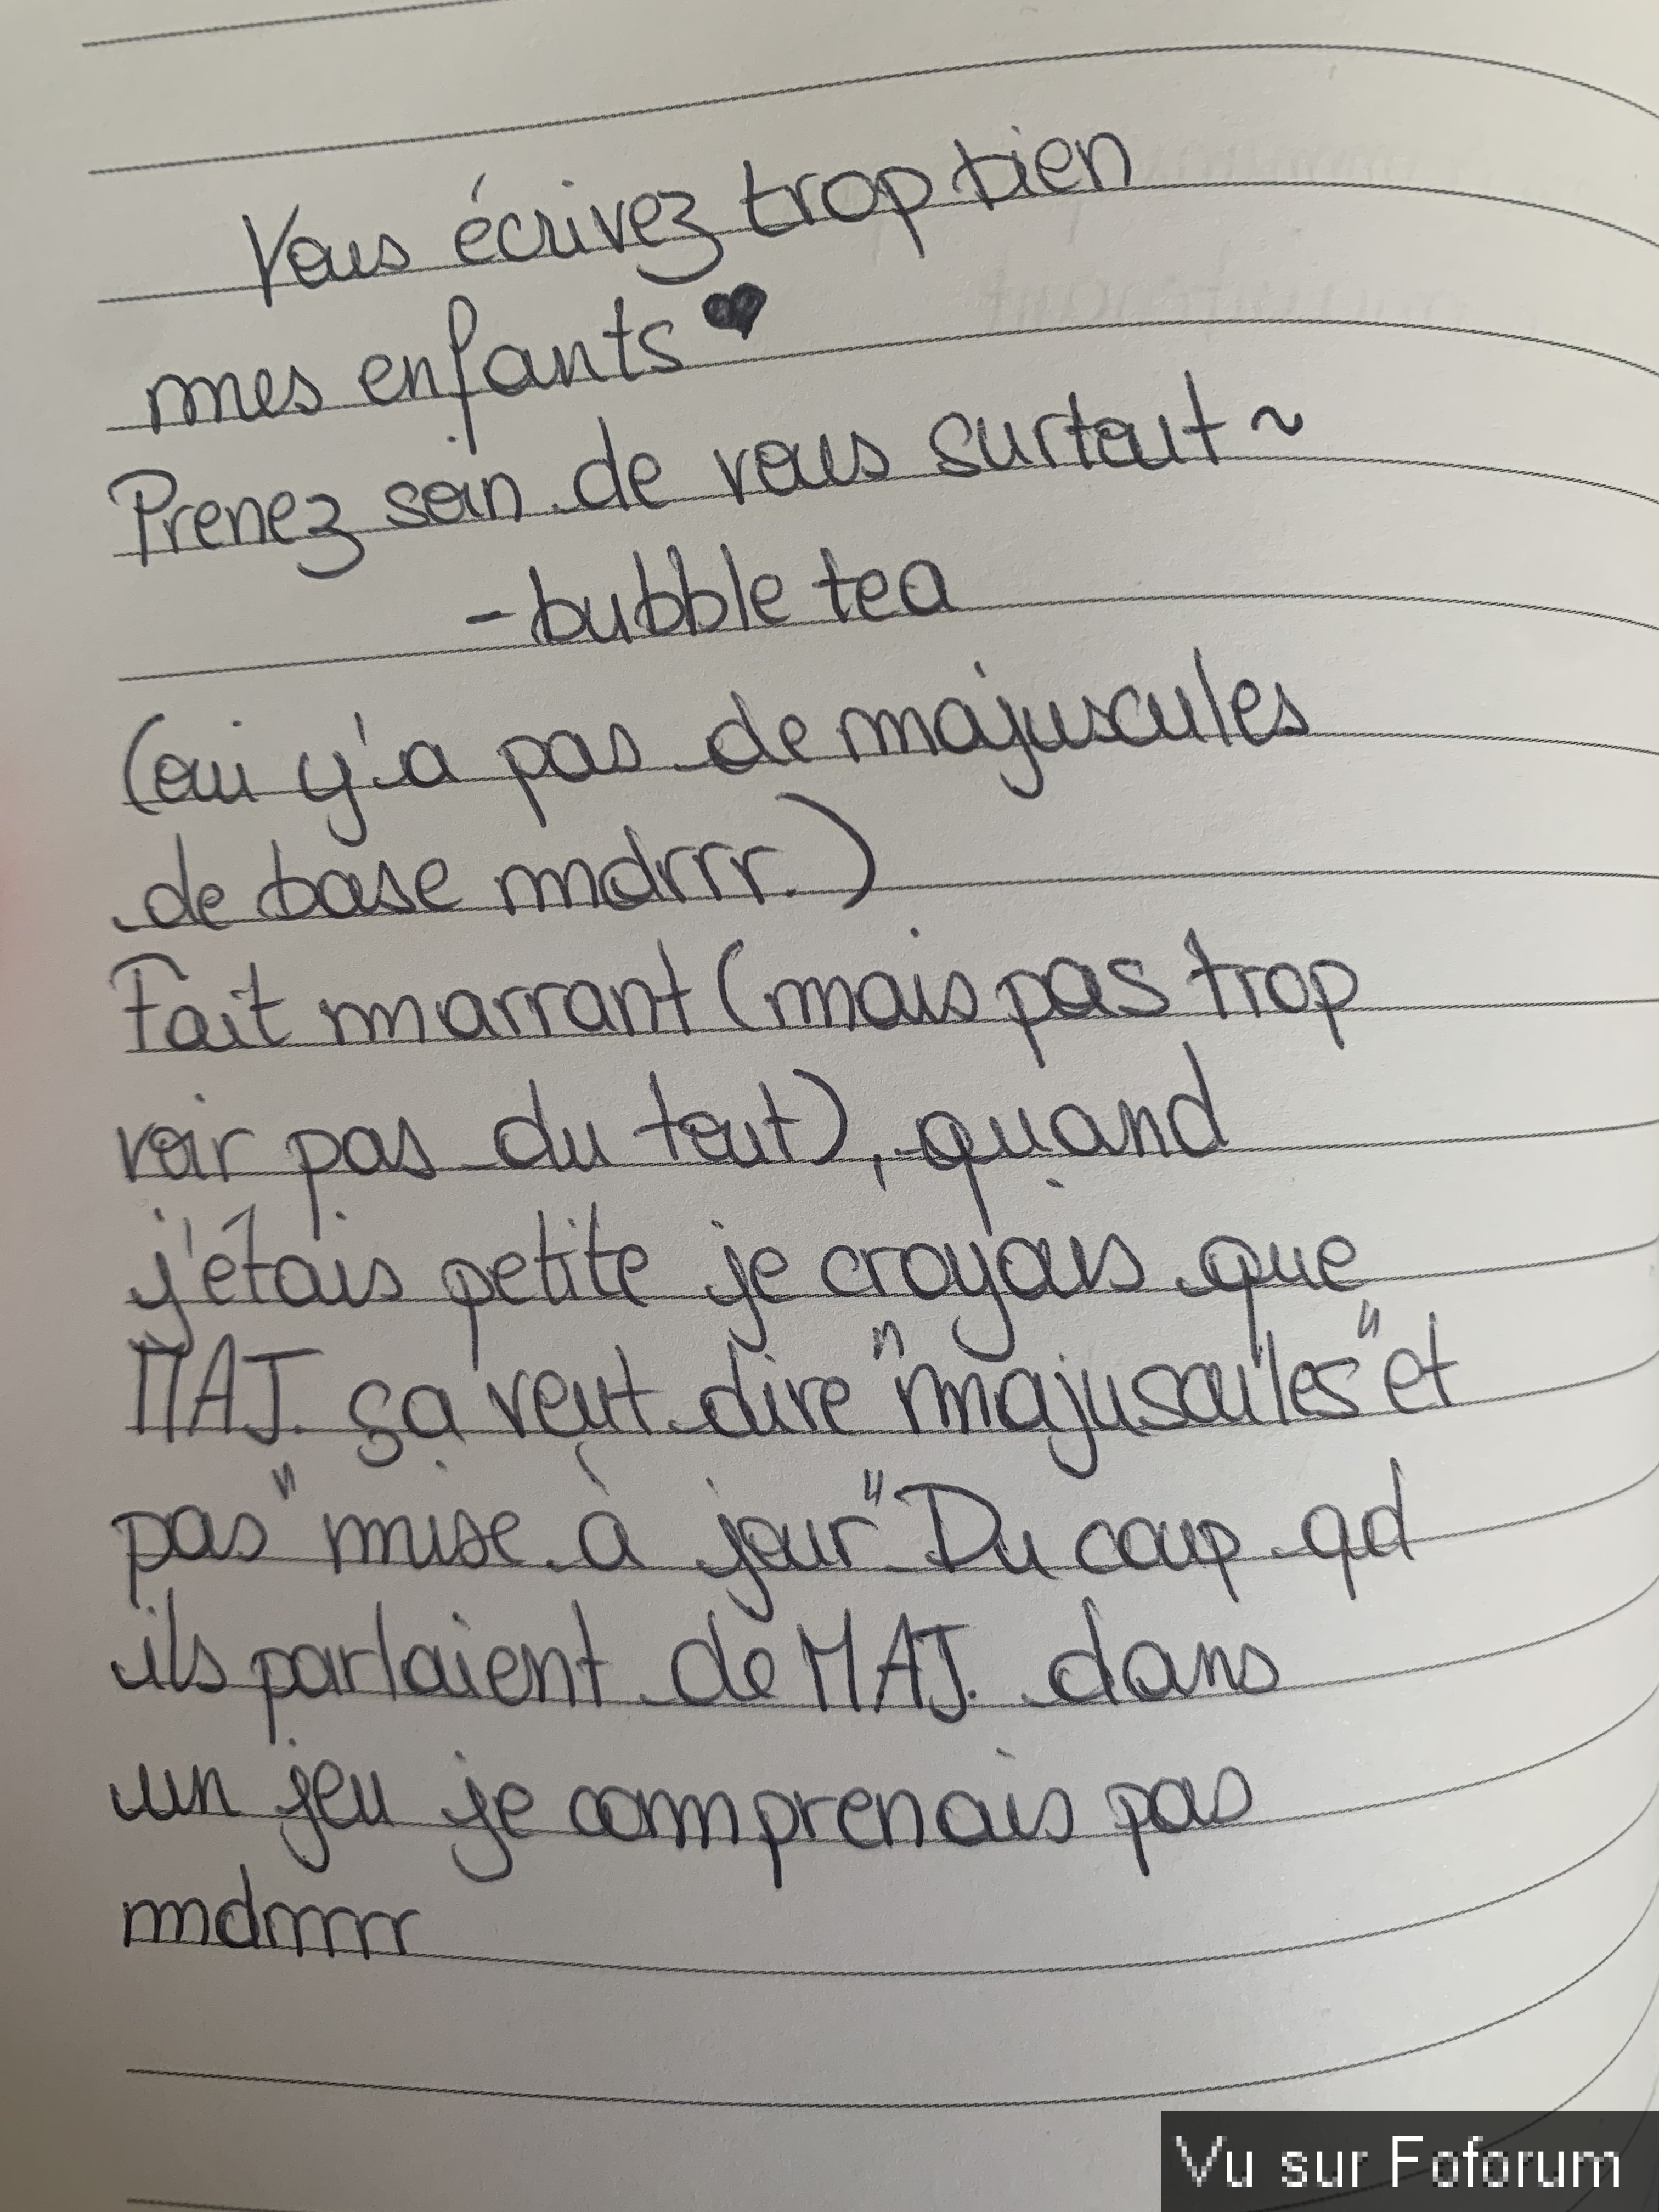 Vous écrivez trop bien
mes enfants ♥
Prenez soin de vous surtout ~
- bubble tea
(oui y'a pas de majuscules
de base mdrrr.)
Fait marrant (mais pas trop
voir pas du tout), quand
j'étais petite je croyais que
MAJ. ça veut dire "majuscules" et
pas "mise à jour" Du coup qd
ils parlaient de MAJ. dans
un jeu je comprenais pas
mdrrrrr
Vu sur Foforum